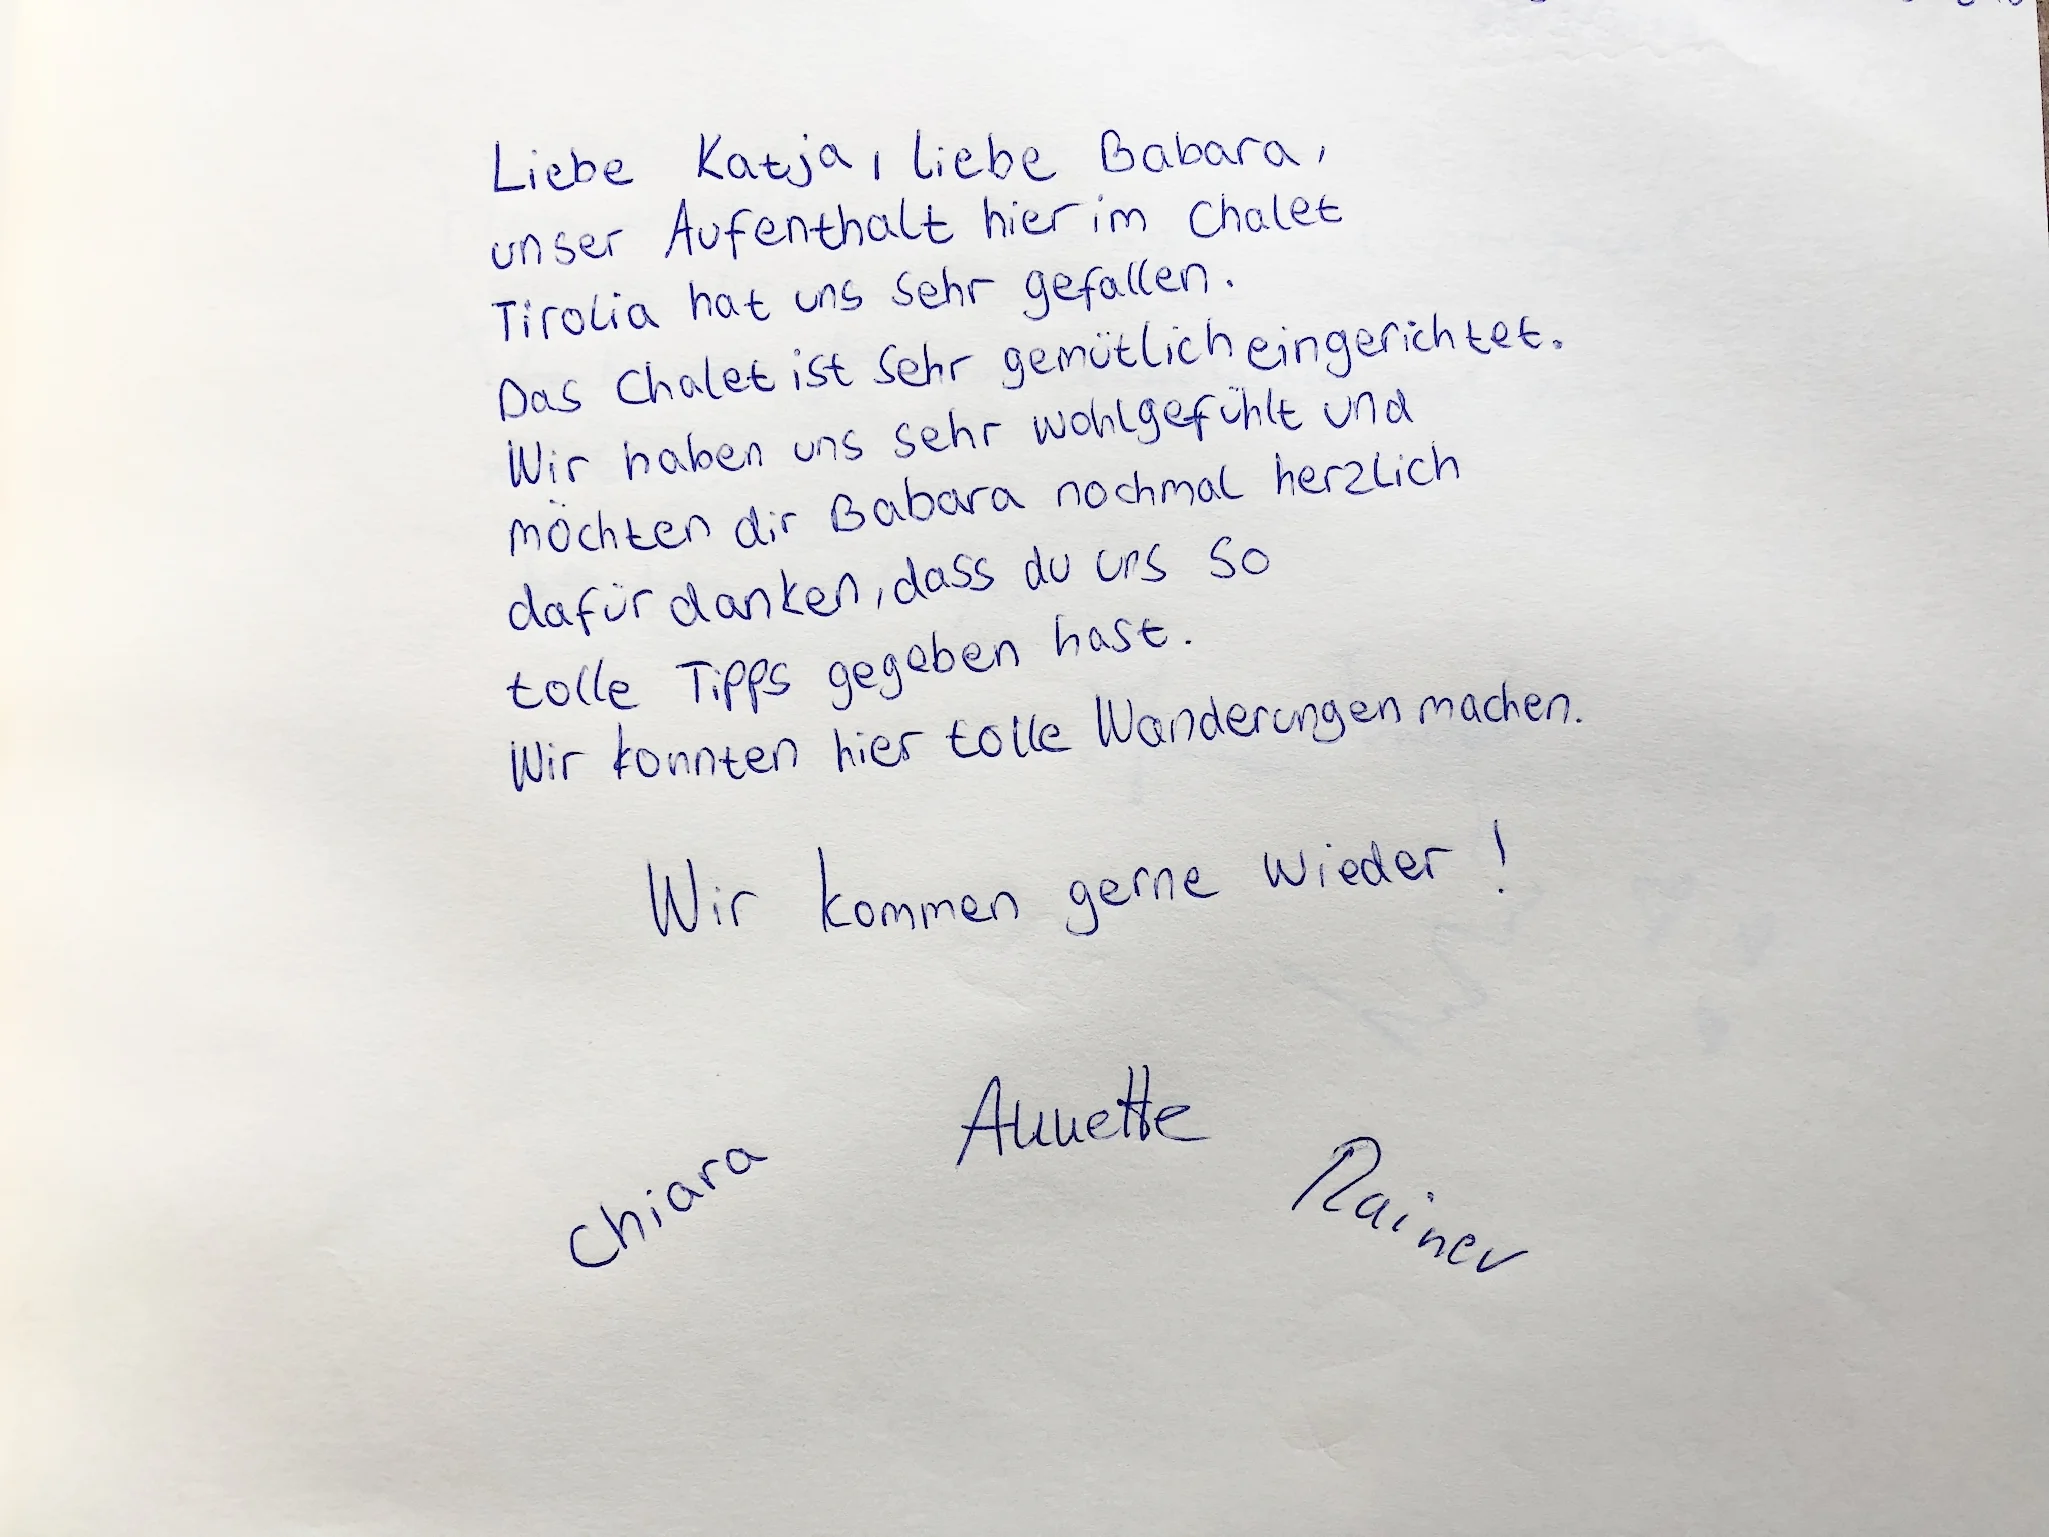 Liebe Katja, liebe Babara,
unser Aufenthalt hier im Chalet
Tirolia hat uns sehr gefallen.
Das Chalet ist sehr gemütlich eingerichtet.
Wir haben uns sehr wohlgefühlt und
möchten dir Babara nochmal herzlich
dafür danken, dass du uns so
tolle Tipps gegeben hast.
Wir konnten hier tolle Wanderungen machen.
Wir kommen gerne wieder!
Annette
Chiara
Rainer